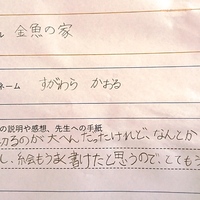 金魚の家
ネーム すがわら かおる
の説明や感想、先生への手紙
切るのが大へんだったけれど、なんとか
し、絵もうまく書けたと思うので、とても